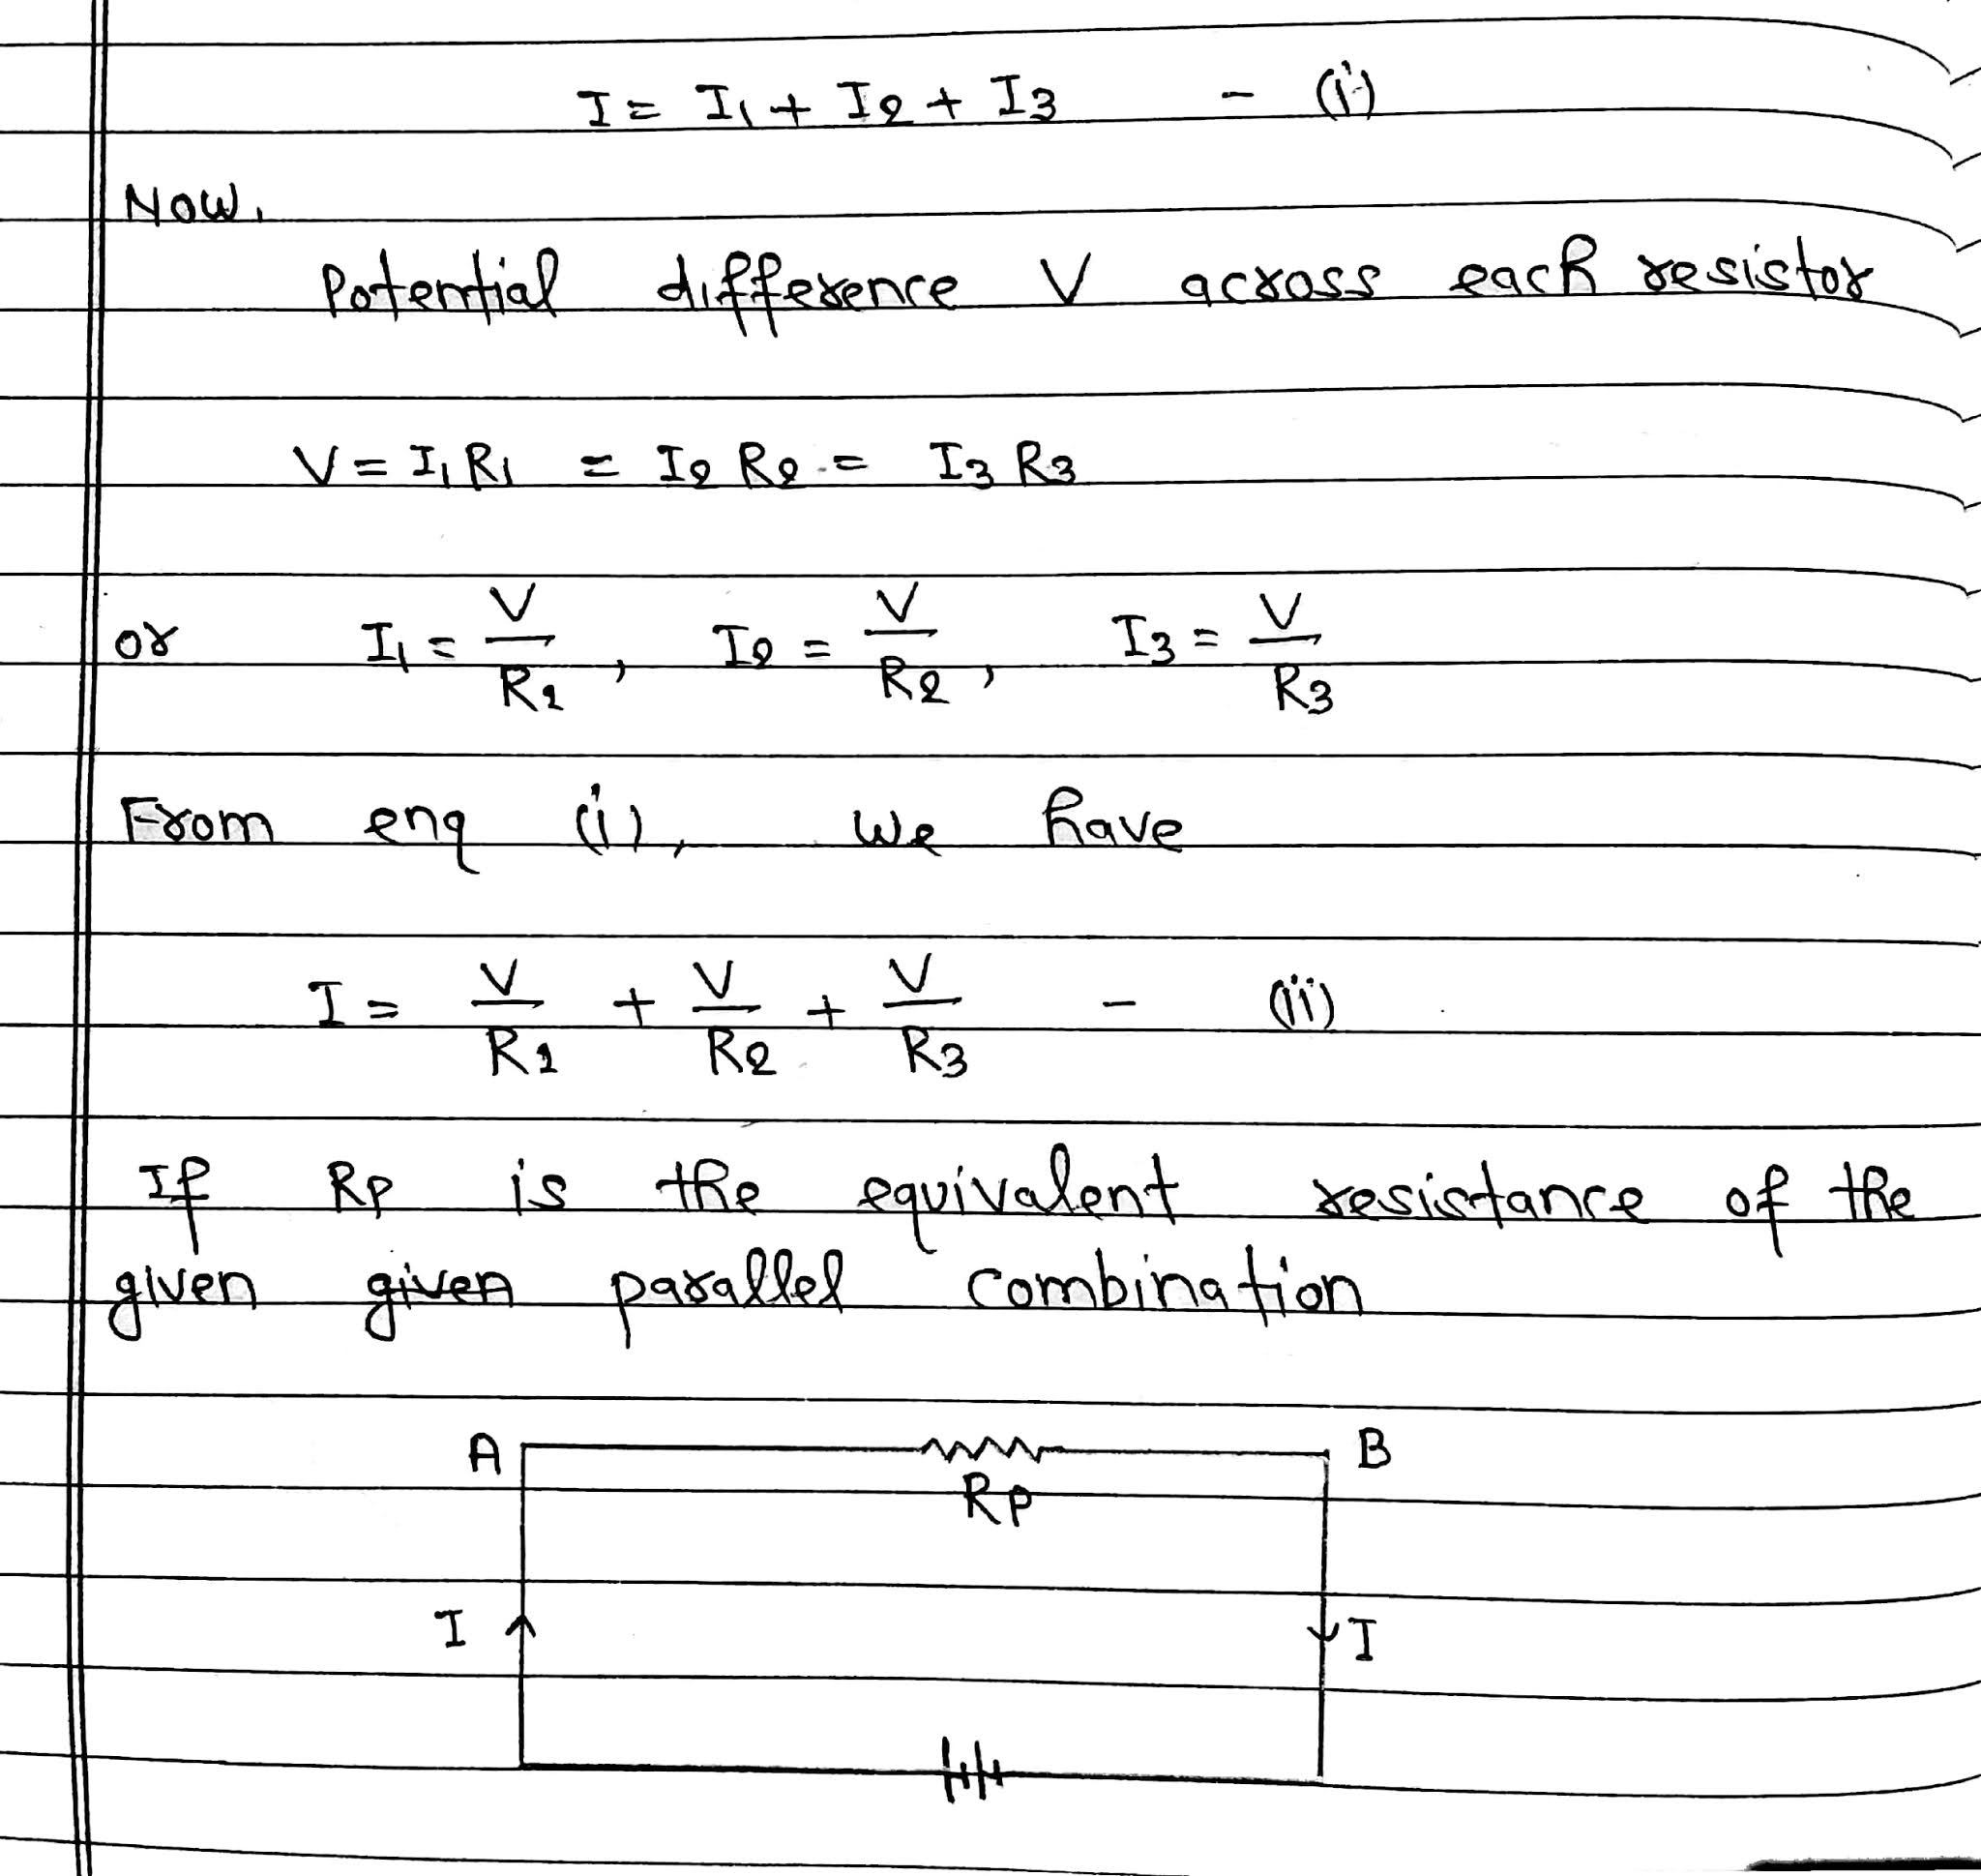 I = I1 + I2 + I3 - (i)
Now,
Potential difference V across each resistor
V = I1 R1 = I2 R2 = I3 R3
or I1 = V/R1 , I2 = V/R2 , I3 = V/R3
From enq (i), we have
I = V/R1 + V/R2 + V/R3 - (ii)
If Rp is the equivalent resistance of the
given given parallel combination
A B
Rp
I I